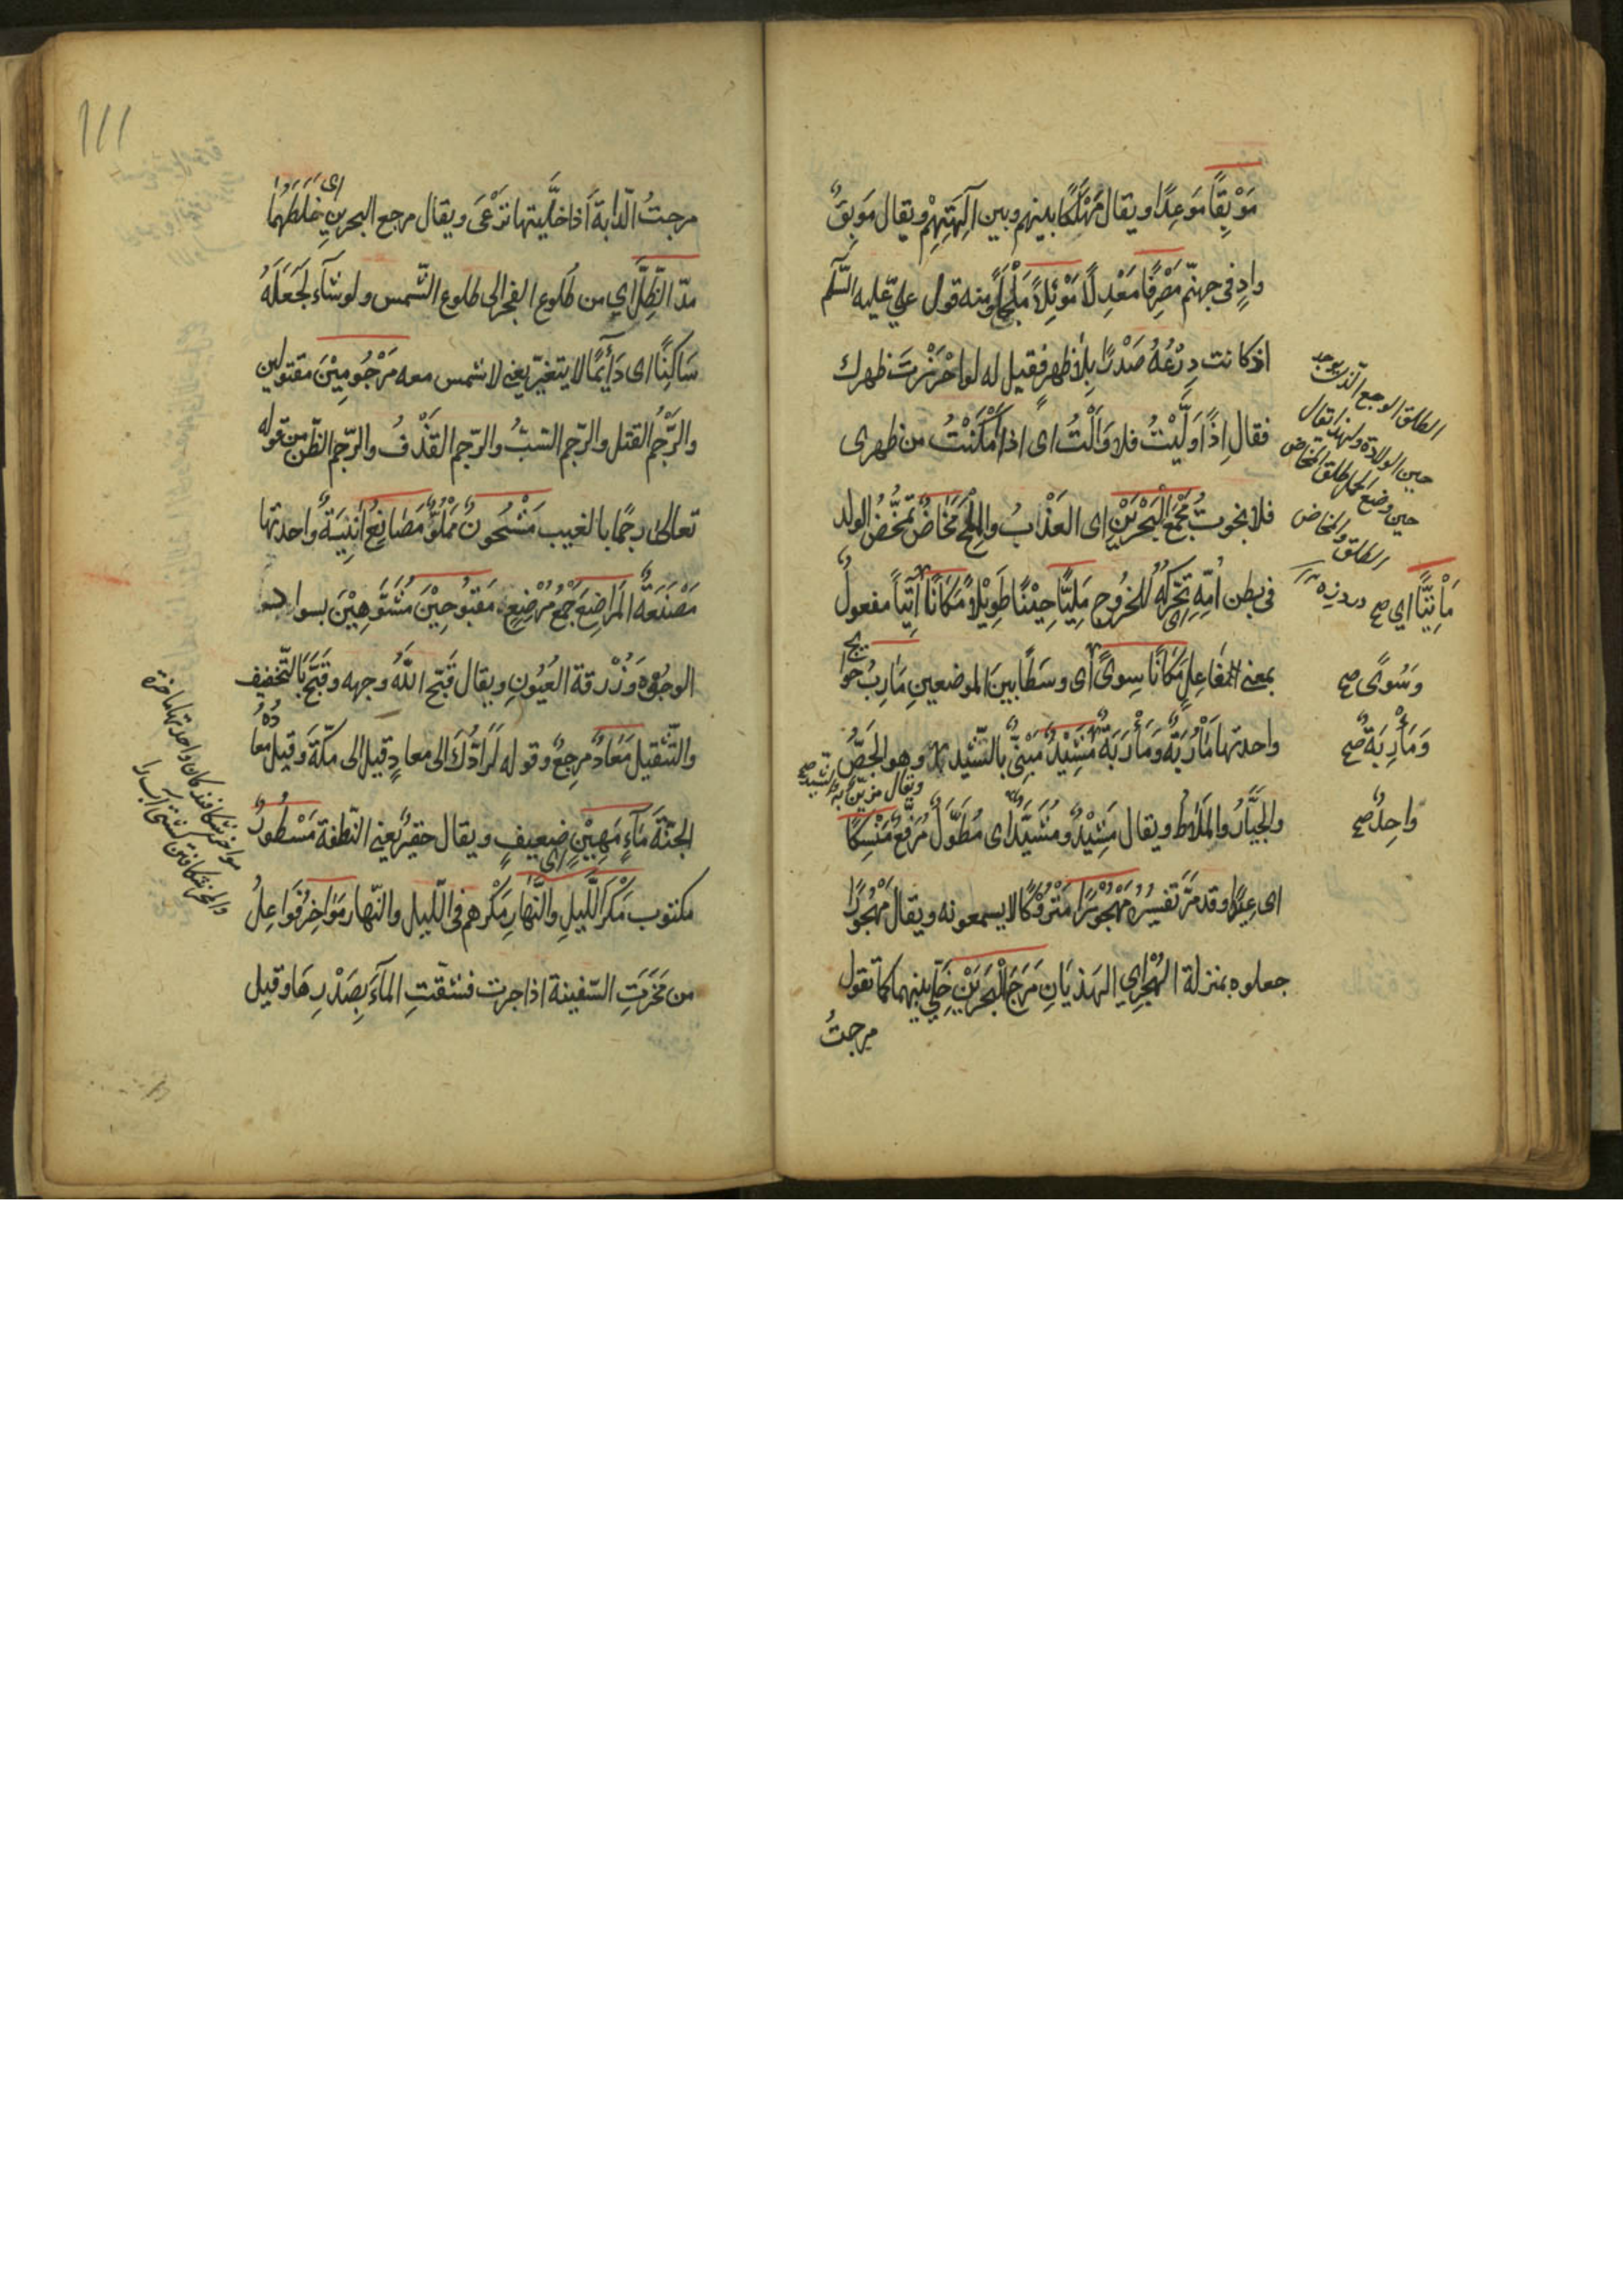 مَوْبِقًا مَوعِدًا ويقال مَهْلَكًا بينهم وبين آلِهَتِهِمْ ويقال مَوْبِقٌ
وادٍ فى جهنّم مَصْرِفًا مَعْدِلًا مَوْئِلًا مَلْجَأً ومنه قول عليّ عليه السّلم
اذ كانت دِرْعُهُ صَدْرًا بِلَا ظهر فقيل له لو احْرَزْتَ ظهرك
فقال اِذًا وَلَّيْتُ فلا وَأَلْتُ اى اذا اَمْكَنْتُ من ظهرى
فلا نجوتُ مَجْمَعَ الْبَحْرَيْنِ اى العَذْبُ والمِلْحُ مَخَاضٌ تَمَخُّضُ الولد
فى بطن اُمّهِ اى تَحَرُّكُهُ للخُروج مَلِيًّا حِيْنًا طَوِيْلًا مَكَانًا آتِيًا مفعول
بمعنى الفاعل مَكَانًا سِوىً اى وسَطًا بينَ الموضعين مَآرِبُ حوايج
واحدتها مَأْرُبَةٌ وَمَأْرَبَةٌ مَشِيْدٌ مَبْنِىٌّ بالشِّيْد وهو الجَصُّ
والجَيَّارُ والمَلَاطُ ويقال مَشِيْدٌ ومُشَيَّدٌ اى مُطَوَّلٌ مُرَفَّعٌ مَنْسِكًا
اى عِيدًا وقد مَرّ تفسيرُه مَهْجُوْرًا مَتْرُوْكًا لا يسمعونه ويقال مَهْجُورًا
جعلوه بمنزلة الهُجْرِ اي الهَذيَانِ مَرَجَ الْبَحْرَيْنِ خَلّى بينهما كما تقول
مرجتُ
الطلق الوجع الذى يوجد
حين الولادة ولهذا يقال
حين وضع الحمل طلق المخاض
والمخاض
الطلق
درد زه
مَأتِيًّا اي صح
وَسُوىً صح
وَمَأْرِبَةٌ صح
واحِدٌ صح
ويقال مزيّن بالشيد صح
111
مرجتُ الدّابة اذا خلَّيتها تَرْعَى ويقال مرج البحرينِ اى خَلَطَهُمَا
مدّ الظِّلَّ اي من طُلوع الفجر الى طلوع الشّمس ولو شآء لَجَعَلَهُ
سَاكِنًا اى دَآئِمًا لا يتغيّر يعنى لا شمس معه مَرْجُومِيْنَ مقتولين
والرَّجْمُ القتل والرّجم السَّبُّ والرّجم القَذْفُ والرّجم الظّن من قوله
تعالى رجمًا بالغيب مَشْحُونٌ مَمْلُوٌّ مَصَانِعُ اَبْنِيَةٌ واحدتها
مَصْنَعَةٌ المَرَاضِعَ جَمْعُ مُرْضِعٍ مَقبُوحِيْنَ مُشَوَّهِيْنَ بسواد
الوجُوْهِ وَزُرْقة العُيُونِ ويقال قَبَّحَ اللّهُ وجهه وقَبَحَ بالتّخفيف
والتّثقيل مَعَادٌ مرجِعٌ وقوله لَرَادُّكَ الى معادٍ قيل الى مكّةَ وقيل معاده
الجنّةَ مَآءٍ مَهِيْنٍ اى ضعيفٍ ويقال حقيرٌ يعنى النّطفة مَسْطُورٌ
مكتوب مَكْرُ اللَّيلِ والنَّهارِ مَكْرهم فى اللّيل والنّهار مَوَاخِرُ فَوَاعِلُ
من مَخَرَتِ السّفينة اذا جرت فشقّتِ المآءَ بِصَدْرِهَا وقيل
مواخر شكافندكان واحدتها ماخرة
والمخر شكافتن كشتى آب را